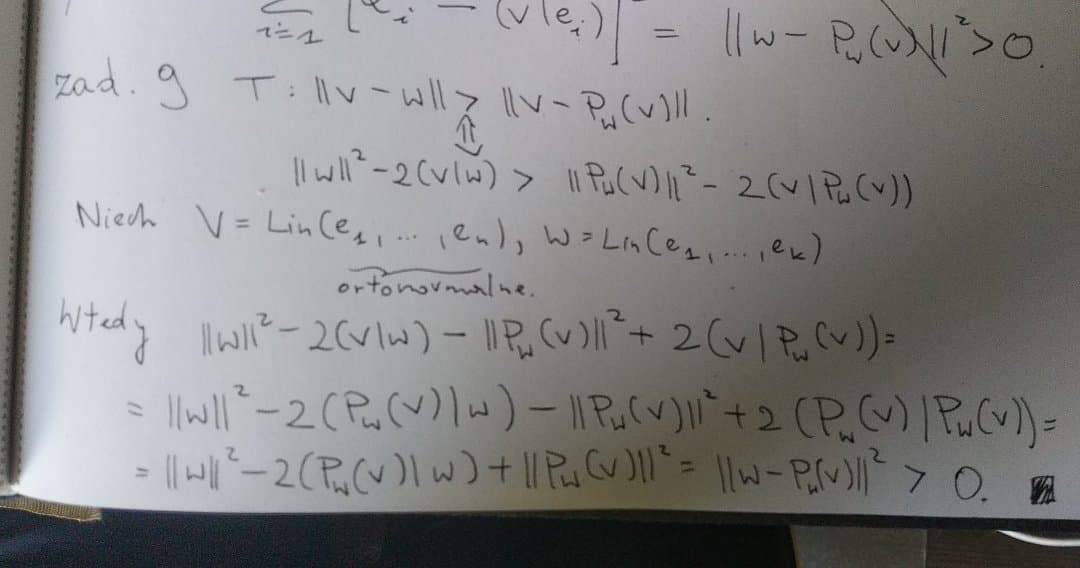 i=1 [e_i - (v|e_i)] = ||w - P_w(v)||² > 0.
zad. 9 T: ||v - w|| > ||v - P_w(v)||.
⇕
||w||² - 2(v|w) > ||P_w(v)||² - 2(v|P_w(v))
Niech V = Lin(e_1, ... , e_n), W = Lin(e_1, ..., e_k)
ortonormalne.
Wtedy ||w||² - 2(v|w) - ||P_w(v)||² + 2(v|P_w(v)) =
= ||w||² - 2(P_w(v)|w) - ||P_w(v)||² + 2(P_w(v)|P_w(v)) =
= ||w||² - 2(P_w(v)|w) + ||P_w(v)||² = ||w - P_w(v)||² > 0.